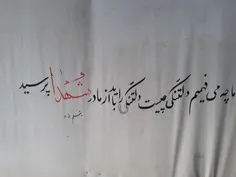 ما چه می فهمیم دلتنگی چیست دلتنگی را باید از مادر شهدا پرسید